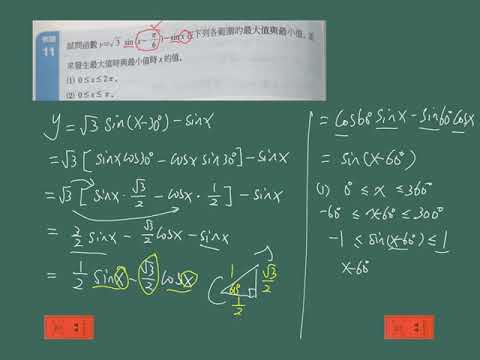 例題
11
試問函數 y=√3 sin(x−π/6)−sinx 在下列各範圍的最大值與最小值,並
求發生最大值時與最小值時 x 的值。
(1) 0≤x≤2π。
(2) 0≤x≤π。
y = √3 sin(x-30°) - sinx
= √3 [sinx cos30° - cosx sin30°] - sinx
= √3 [sinx · √3/2 - cosx · 1/2] - sinx
= 3/2 sinx - √3/2 cosx - sinx
= 1/2 sinx - √3/2 cosx
1
√3/2
60°
1/2
= cos60° sinx - sin60° cosx
= sin(x-60°)
(1) 0° ≤ x ≤ 360°
-60° ≤ x-60° ≤ 300°
-1 ≤ sin(x-60°) ≤ 1
x-60°